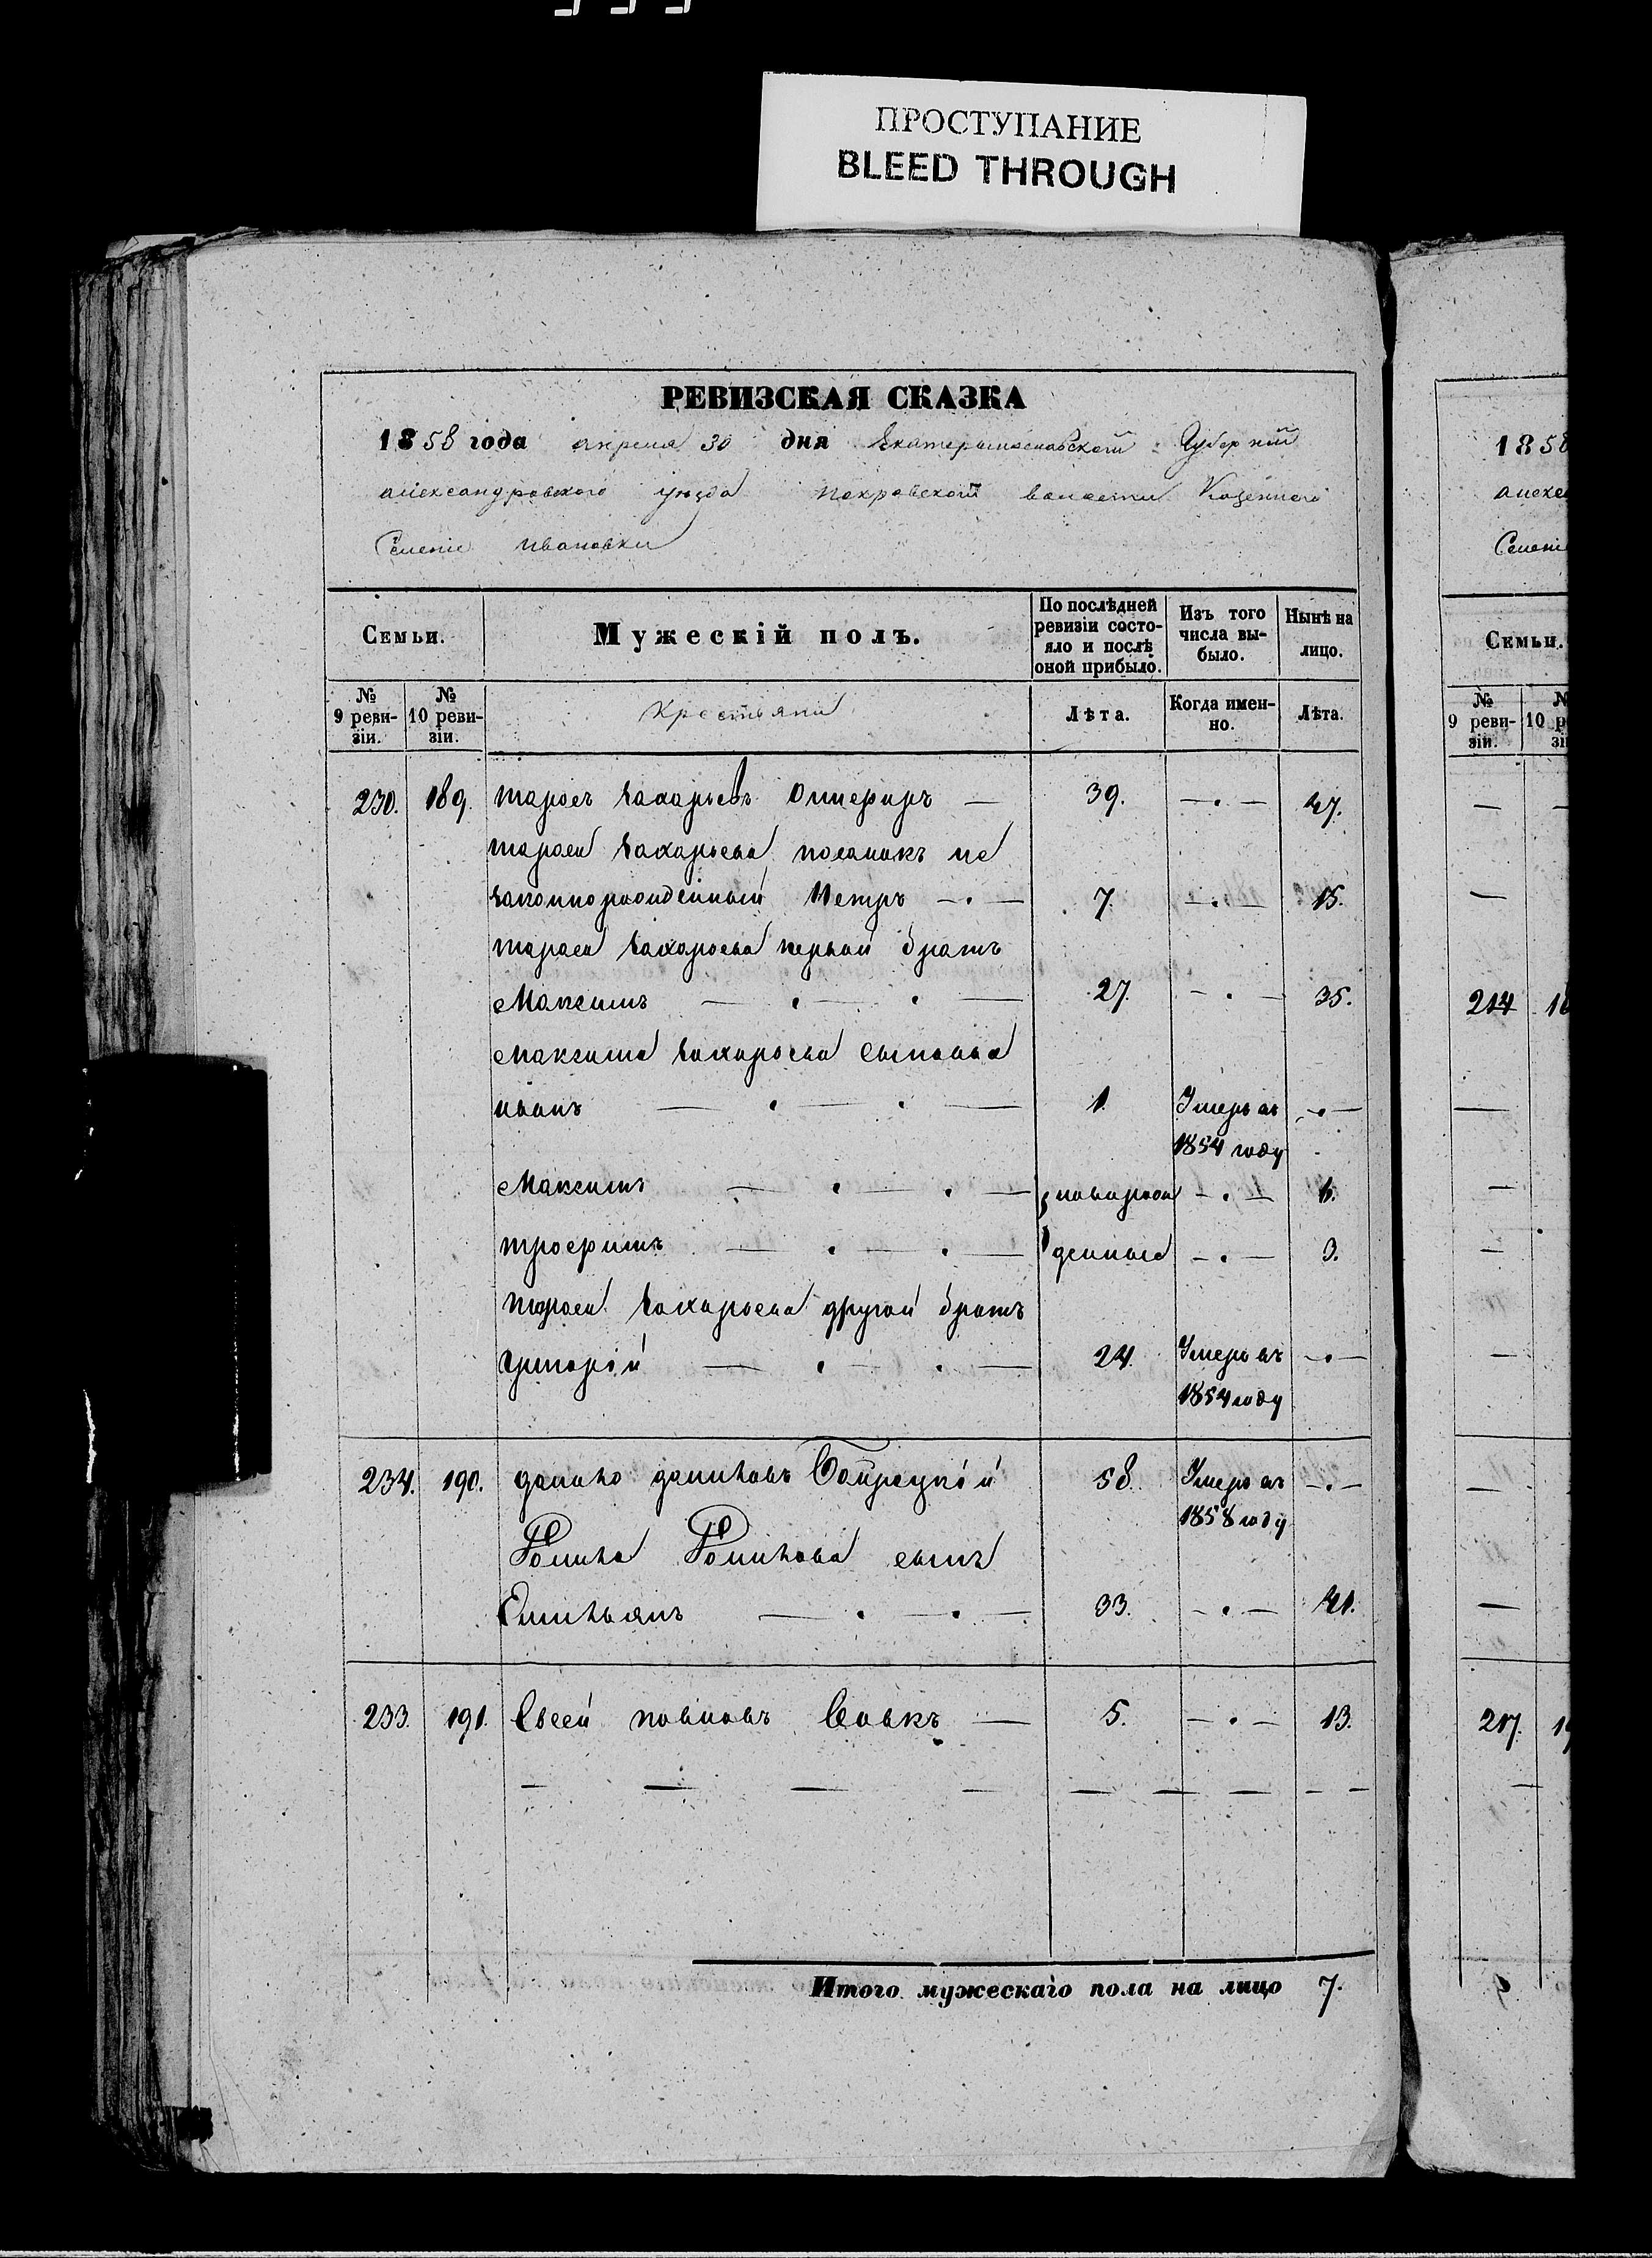 ПРОСТУПАНИЕ
BLEED THROUGH
РЕВИЗСКАЯ СКАЗКА
1858 года апреля 30 дня Екатеринославской Губерніи
александровского уезда покровской волости Казенного
Селеніе ивановки
Семьи.
Мужескій полъ.
По послѣдней ревизіи состо-
яло и послѣ
оной прибыло.
Изъ того
числа вы-
было.
Нынѣ на
лицо.
№
9 реви-
зіи.
№
10 реви-
зіи.
Крестьяни
Лѣта.
Когда имен-
но.
Лѣта.
230. 189. тарасъ захарьевъ — 39. —.— 47.
тараса захарьева не
законнорожденный Петръ —.— 7. —.— 15.
тараса захарьева первый братъ
Максимъ — . — . — 27. —.— 35.
Максима захарьева сыновья
иванъ — . — . — 1. Умеръ въ —.—
1854 году
Максимъ — . — . — новорож —.— 6.
трофимъ — . — . — денные —.— 3.
тараса захарьева другой братъ
григорій — . — . — 24. Умеръ въ —.—
1854 году
234. 190. данило даниловъ 58. Умеръ въ —.—
1858 году
Данила Данилова сынъ
Емильянъ — . — . — 33. —.— 41.
233. 191. Евсей павловъ — 5. —.— 13.
Итого мужескаго пола на лицо 7.
1858
алекса
Селені
Семьи.
№
9 реви-
зіи.
10
214
217.